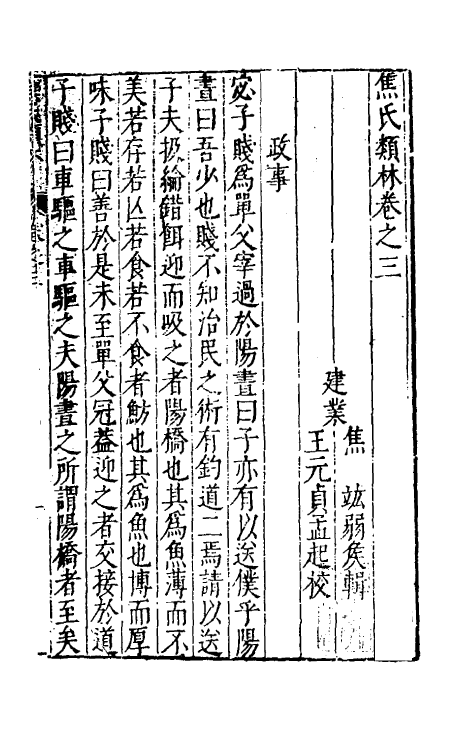 焦氏類林卷之三
建業
焦竑弱侯輯
王元貞孟起校
政事
宓子賤爲單父宰過於陽晝曰子亦有以送僕乎陽
晝曰吾少也賤不知治民之術有釣道二焉請以送
子夫扱綸錯餌迎而吸之者陽橋也其爲魚薄而不
美若存若亡若食若不食者魴也其爲魚也博而厚
味子賤曰善於是未至單父冠蓋迎之者交接於道
子賤曰車驅之車驅之夫陽晝之所謂陽橋者至矣